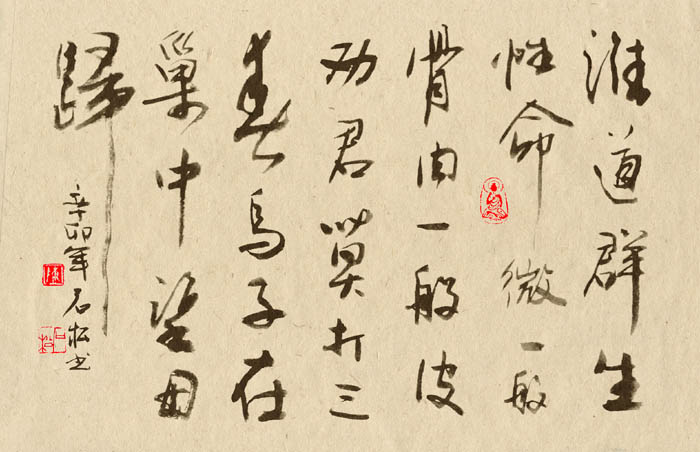 谁道群生
性命微一般
骨肉一般皮
劝君莫打三
春鸟子在
巢中望母
歸
辛卯年石松书